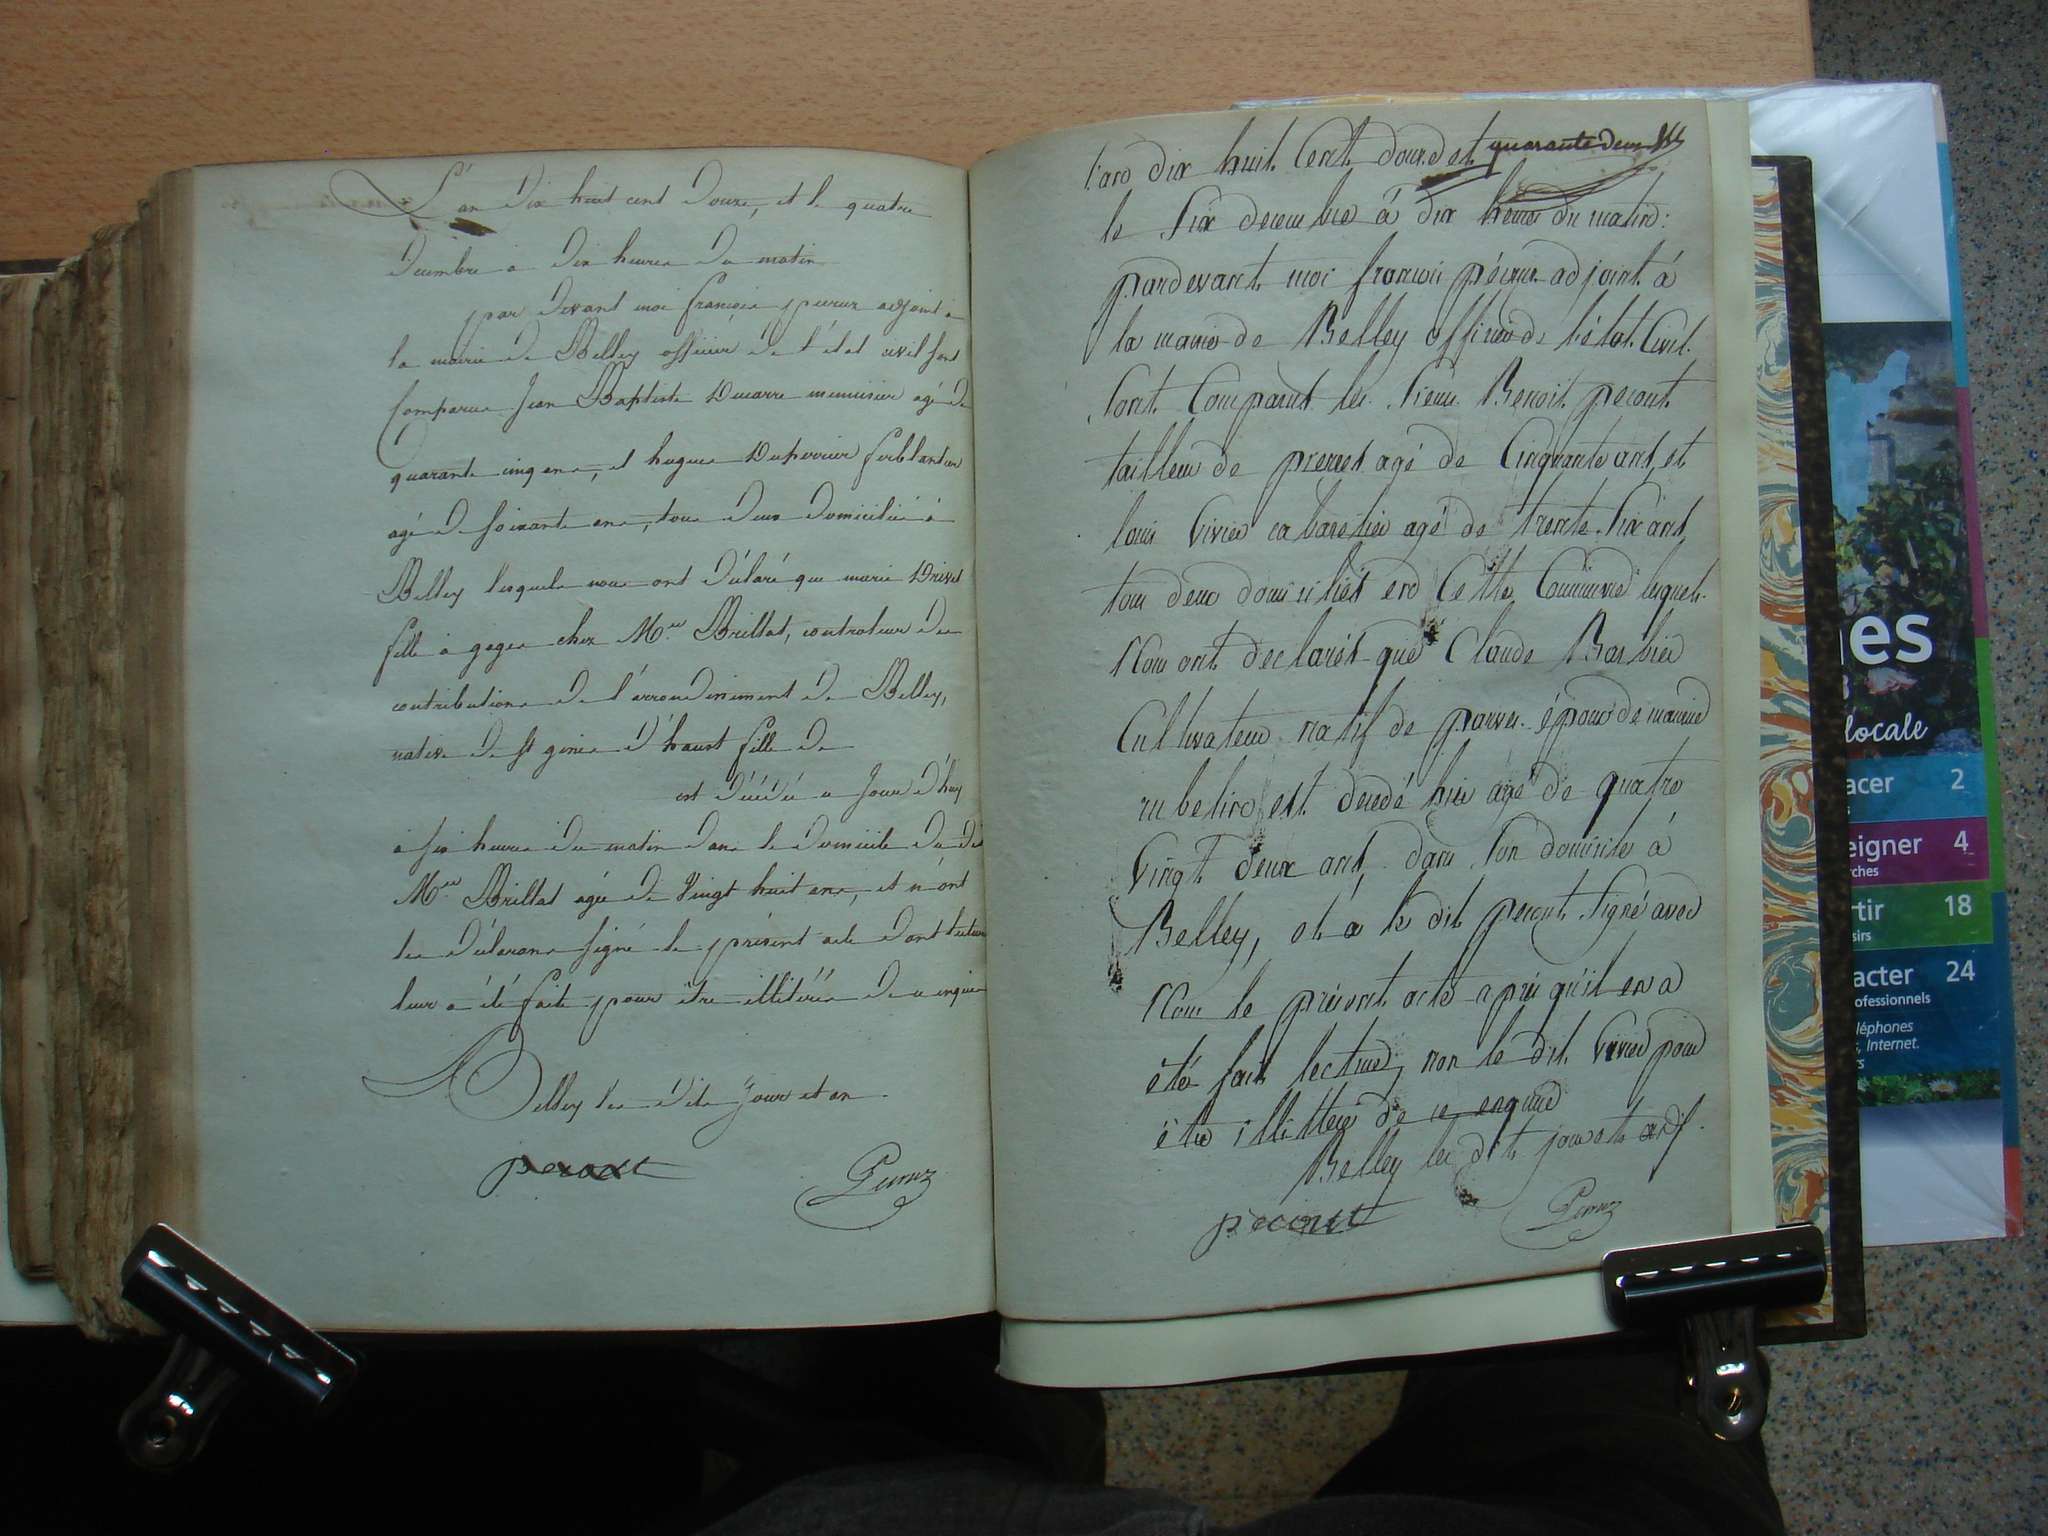 L'an Dix huit cent Douze, et le quatre
Decembre a Dix heures Du matin
par Devant moi françois peruz adjoint a
la mairie De Belley officier De l'état civil sont
Comparus Jean Baptiste Ducarre menuisier agé De
quarante cinq ans, et hugues ferblantier
agé De soixante ans, tous Deux Domiciliés a
Belley lesquels nous ont Déclaré que marie Drivet
fille a gages chez Mr. Brillat, controleur Des
contributions De l'arrondissement De Belley,
native De st genis D' fille De
est Décédée a Jour D'huy
a six heures Du matin Dans le Domicile Du dt
Mr Brillat agée De Vingt huit ans, et n'ont
les Déclarans signé le présent acte Dont lecture
leur a été faite pour être illitérés De ce enquis
Belley les Dits Jour et an.
pecout Peruz
l'an dix huit Cent douze et quarante deux
le Six decembre à dix heures du matin:
pardevant moi françois péruz adjoint à
la mairie de Belley officier de l'état Civil.
Sont Comparus les Sieurs Benoit pecout
tailleur de pierres agé de Cinquante ans, et
louis Vivier cabaretier agé de trente Six ans,
tous deux domiciliés en Cette Commune lesquels
Nous ont declarés que Claude Barbier
Cultivateur natif de parves époux de
rubelin est decedé hier agé de quatre
Vingt deux ans, dans Son domicile à
Belley, et a le dit pecout Signé avec
Nous le présent acte après qu'il en a
été fait lecture, non le dit Vivier pour
être illitteré de ce enquis
Belley les dit jour et an.
pecout Peruz
nes
locale
acer 2
eigner 4
rches
rtir 18
sirs
acter 24
ofessionnels
léphones
, Internet.
rs